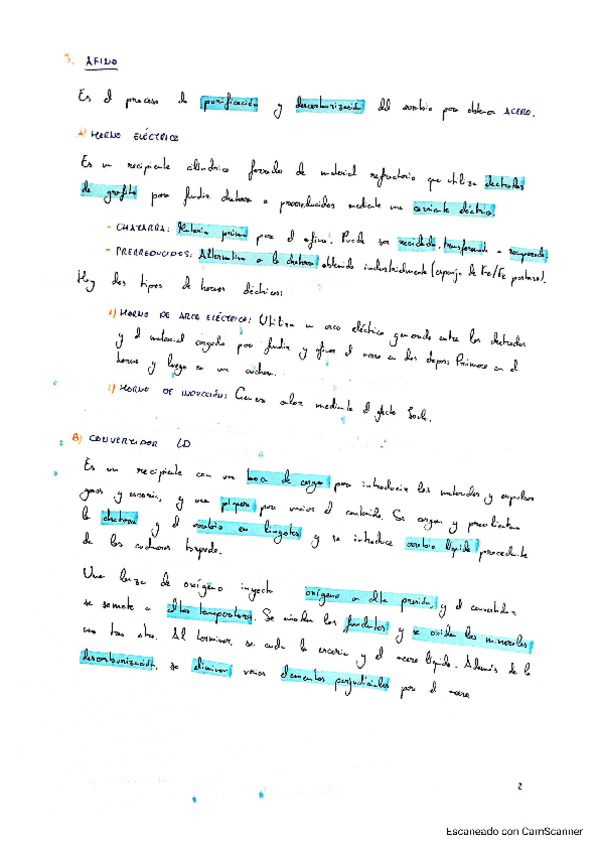 3. AFINO
Es el proceso de purificación y descarburización del arrabio para obtener ACERO.
A) HORNO ELÉCTRICO
Es un recipiente cilíndrico forrado de material refractario que utiliza electrodos
de grafito para fundir chatarra o prerreducidos mediante una corriente eléctrica.
- CHATARRA: Materia prima para el afino. Puede ser reciclada, transformada o recuperada
- PRERREDUCIDOS: Alternativa a la chatarra obtenida industrialmente (esponja de Fe/Fe poroso).
Hay dos tipos de hornos eléctricos:
1) HORNO DE ARCO ELÉCTRICO: Utiliza un arco eléctrico generado entre los electrodos
y el material cargado para fundir y afinar el acero en dos etapas. Primero en el
horno y luego en una cuchara.
2) HORNO DE INDUCCIÓN: Genera calor mediante el efecto Joule.
B) CONVERTIDOR LD
Es un recipiente con una boca de carga para introducir los materiales y expulsar
gases y escoria, y una piquera para vaciar el contenido. Se cargan y precalientan
la chatarra y el arrabio en lingotes y se introduce arrabio líquido procedente
de los cucharas torpedo.
Una lanza de oxígeno inyecta oxígeno a alta presión, y el convertidor
se somete a altas temperaturas. Se añaden los fundentes y se oxidan los minerales
uno tras otro. Al terminar, se cuela la escoria y el acero líquido. Además de la
descarburización, se eliminan varios elementos perjudiciales para el acero
2
Escaneado con CamScanner